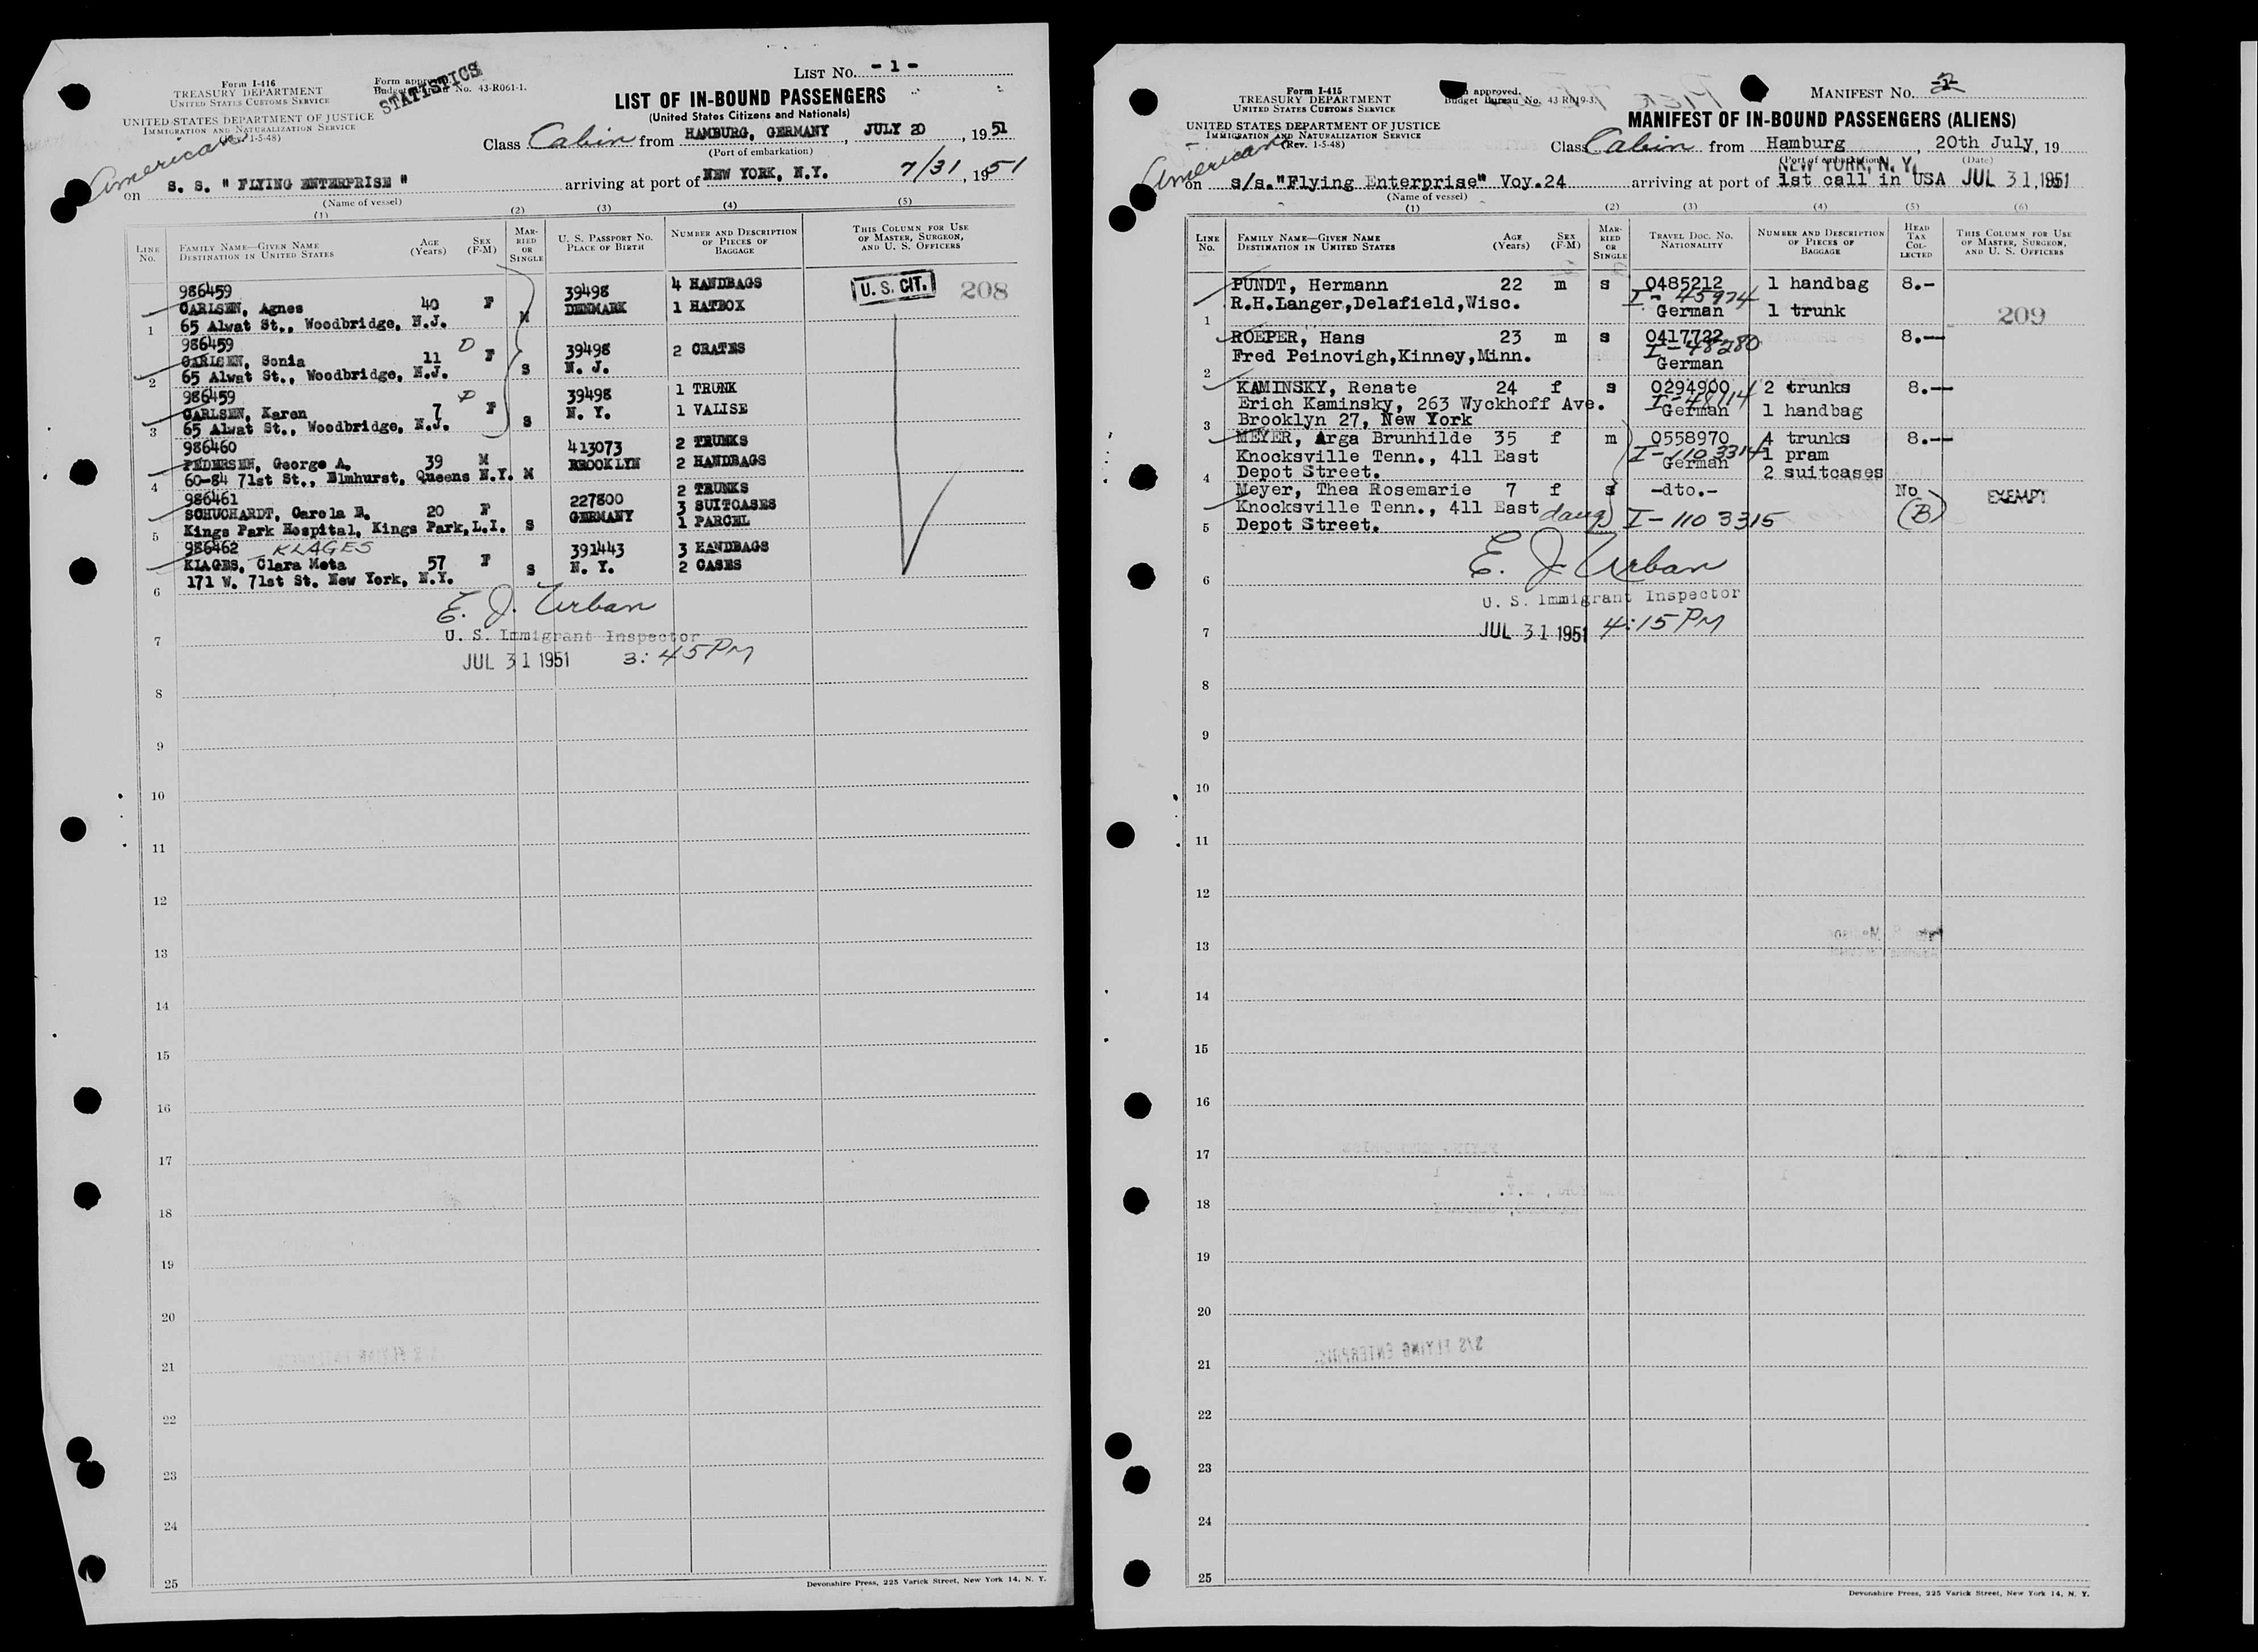 LIST No. - 1 -
Form I-416
TREASURY DEPARTMENT
UNITED STATES CUSTOMS SERVICE
Form approved.
Budget Bureau No. 43-R061-1.
STATISTICS
UNITED STATES DEPARTMENT OF JUSTICE
IMMIGRATION AND NATURALIZATION SERVICE
(Rev. 1-5-48)
American
LIST OF IN-BOUND PASSENGERS
(United States Citizens and Nationals)
Class Cabin from HAMBURG, GERMANY, JULY 20, 1951
(Port of embarkation)
on S. S. " FLYING ENTERPRISE " arriving at port of NEW YORK, N.Y. 7/31, 1951
(Name of vessel)
(1) (2) (3) (4) (5)
LINE No.
FAMILY NAME—GIVEN NAME
DESTINATION IN UNITED STATES
AGE (Years)
SEX (F-M)
MARRIED OR SINGLE
U. S. PASSPORT NO.
PLACE OF BIRTH
NUMBER AND DESCRIPTION OF PIECES OF BAGGAGE
THIS COLUMN FOR USE OF MASTER, SURGEON, AND U. S. OFFICERS
986459 39498 4 HANDBAGS U. S. CIT. 208
CARLSEN, Agnes 40 F DENMARK 1 HATBOX
1 65 Alwat St., Woodbridge, N.J. M
986459 D
CARLSEN, Sonia 11 F 39498 2 CRATES
2 65 Alwat St., Woodbridge, N.J. S N. J.
986459 D 39498 1 TRUNK
CARLSEN, Karen 7 F N. Y. 1 VALISE
3 65 Alwat St., Woodbridge, N.J. S
986460 413073 2 TRUNKS
PEDERSEN, George A. 39 M BROOKLYN 2 HANDBAGS
4 60-84 71st St., Elmhurst, Queens N.Y. M
986461 227800 2 TRUNKS
SCHUCHARDT, Carola E. 20 F GERMANY 3 SUITCASES
5 Kings Park Hospital, Kings Park, L.I. S 1 PARCEL
986462 KLAGES 391443 3 HANDBAGS
KLAGES, Clara Meta 57 F N. Y. 2 CASES
6 171 W. 71st St. New York, N.Y. S
E. J. Urban
7 U. S. Immigrant Inspector
JUL 31 1951 3:45 PM
8
9
10
11
12
13
14
15
16
17
18
19
20
21
22
23
24
25
Devonshire Press, 225 Varick Street, New York 14, N. Y.
MANIFEST No. 2
Form I-415
TREASURY DEPARTMENT
UNITED STATES CUSTOMS SERVICE
approved.
Budget Bureau No. 43 R019-3.
UNITED STATES DEPARTMENT OF JUSTICE
IMMIGRATION AND NATURALIZATION SERVICE
(Rev. 1-5-48)
American
MANIFEST OF IN-BOUND PASSENGERS (ALIENS)
Class Cabin from Hamburg, 20th July, 19
(Port of embarkation) (Date)
NEW YORK, N. Y.
on s/s."Flying Enterprise" Voy.24 arriving at port of 1st call in USA JUL 31, 1951
(Name of vessel)
(1) (2) (3) (4) (5) (6)
LINE No.
FAMILY NAME—GIVEN NAME
DESTINATION IN UNITED STATES
AGE (Years)
SEX (F-M)
MARRIED OR SINGLE
TRAVEL DOC. NO.
NATIONALITY
NUMBER AND DESCRIPTION OF PIECES OF BAGGAGE
HEAD TAX COLLECTED
THIS COLUMN FOR USE OF MASTER, SURGEON, AND U. S. OFFICERS
PUNDT, Hermann 22 m s 0485212 1 handbag 8.-
R.H.Langer,Delafield,Wisc. I-45974
1 German 1 trunk 209
ROEPER, Hans 23 m s 0417722 8.—
Fred Peinovigh,Kinney,Minn. I-48280
2 German
KAMINSKY, Renate 24 f s 0294900 2 trunks 8.—
Erich Kaminsky, 263 Wyckhoff Ave. I-48114 German 1 handbag
3 Brooklyn 27, New York
MEYER, Arga Brunhilde 35 f m 0558970 4 trunks 8.—
Knocksville Tenn., 411 East I-1103314 German 1 pram
4 Depot Street. 2 suitcases
Meyer, Thea Rosemarie 7 f s -dto.- No EXEMPT
Knocksville Tenn., 411 East daug I-1103315 (B)
5 Depot Street.
E. J. Urban
6
U. S. Immigrant Inspector
7 JUL 31 1951 4:15 PM
8
9
10
11
12
13
14
15
16
17
18
19
20
S/S FLYING ENTERPRISE
21
22
23
24
25
Devonshire Press, 225 Varick Street, New York 14, N. Y.